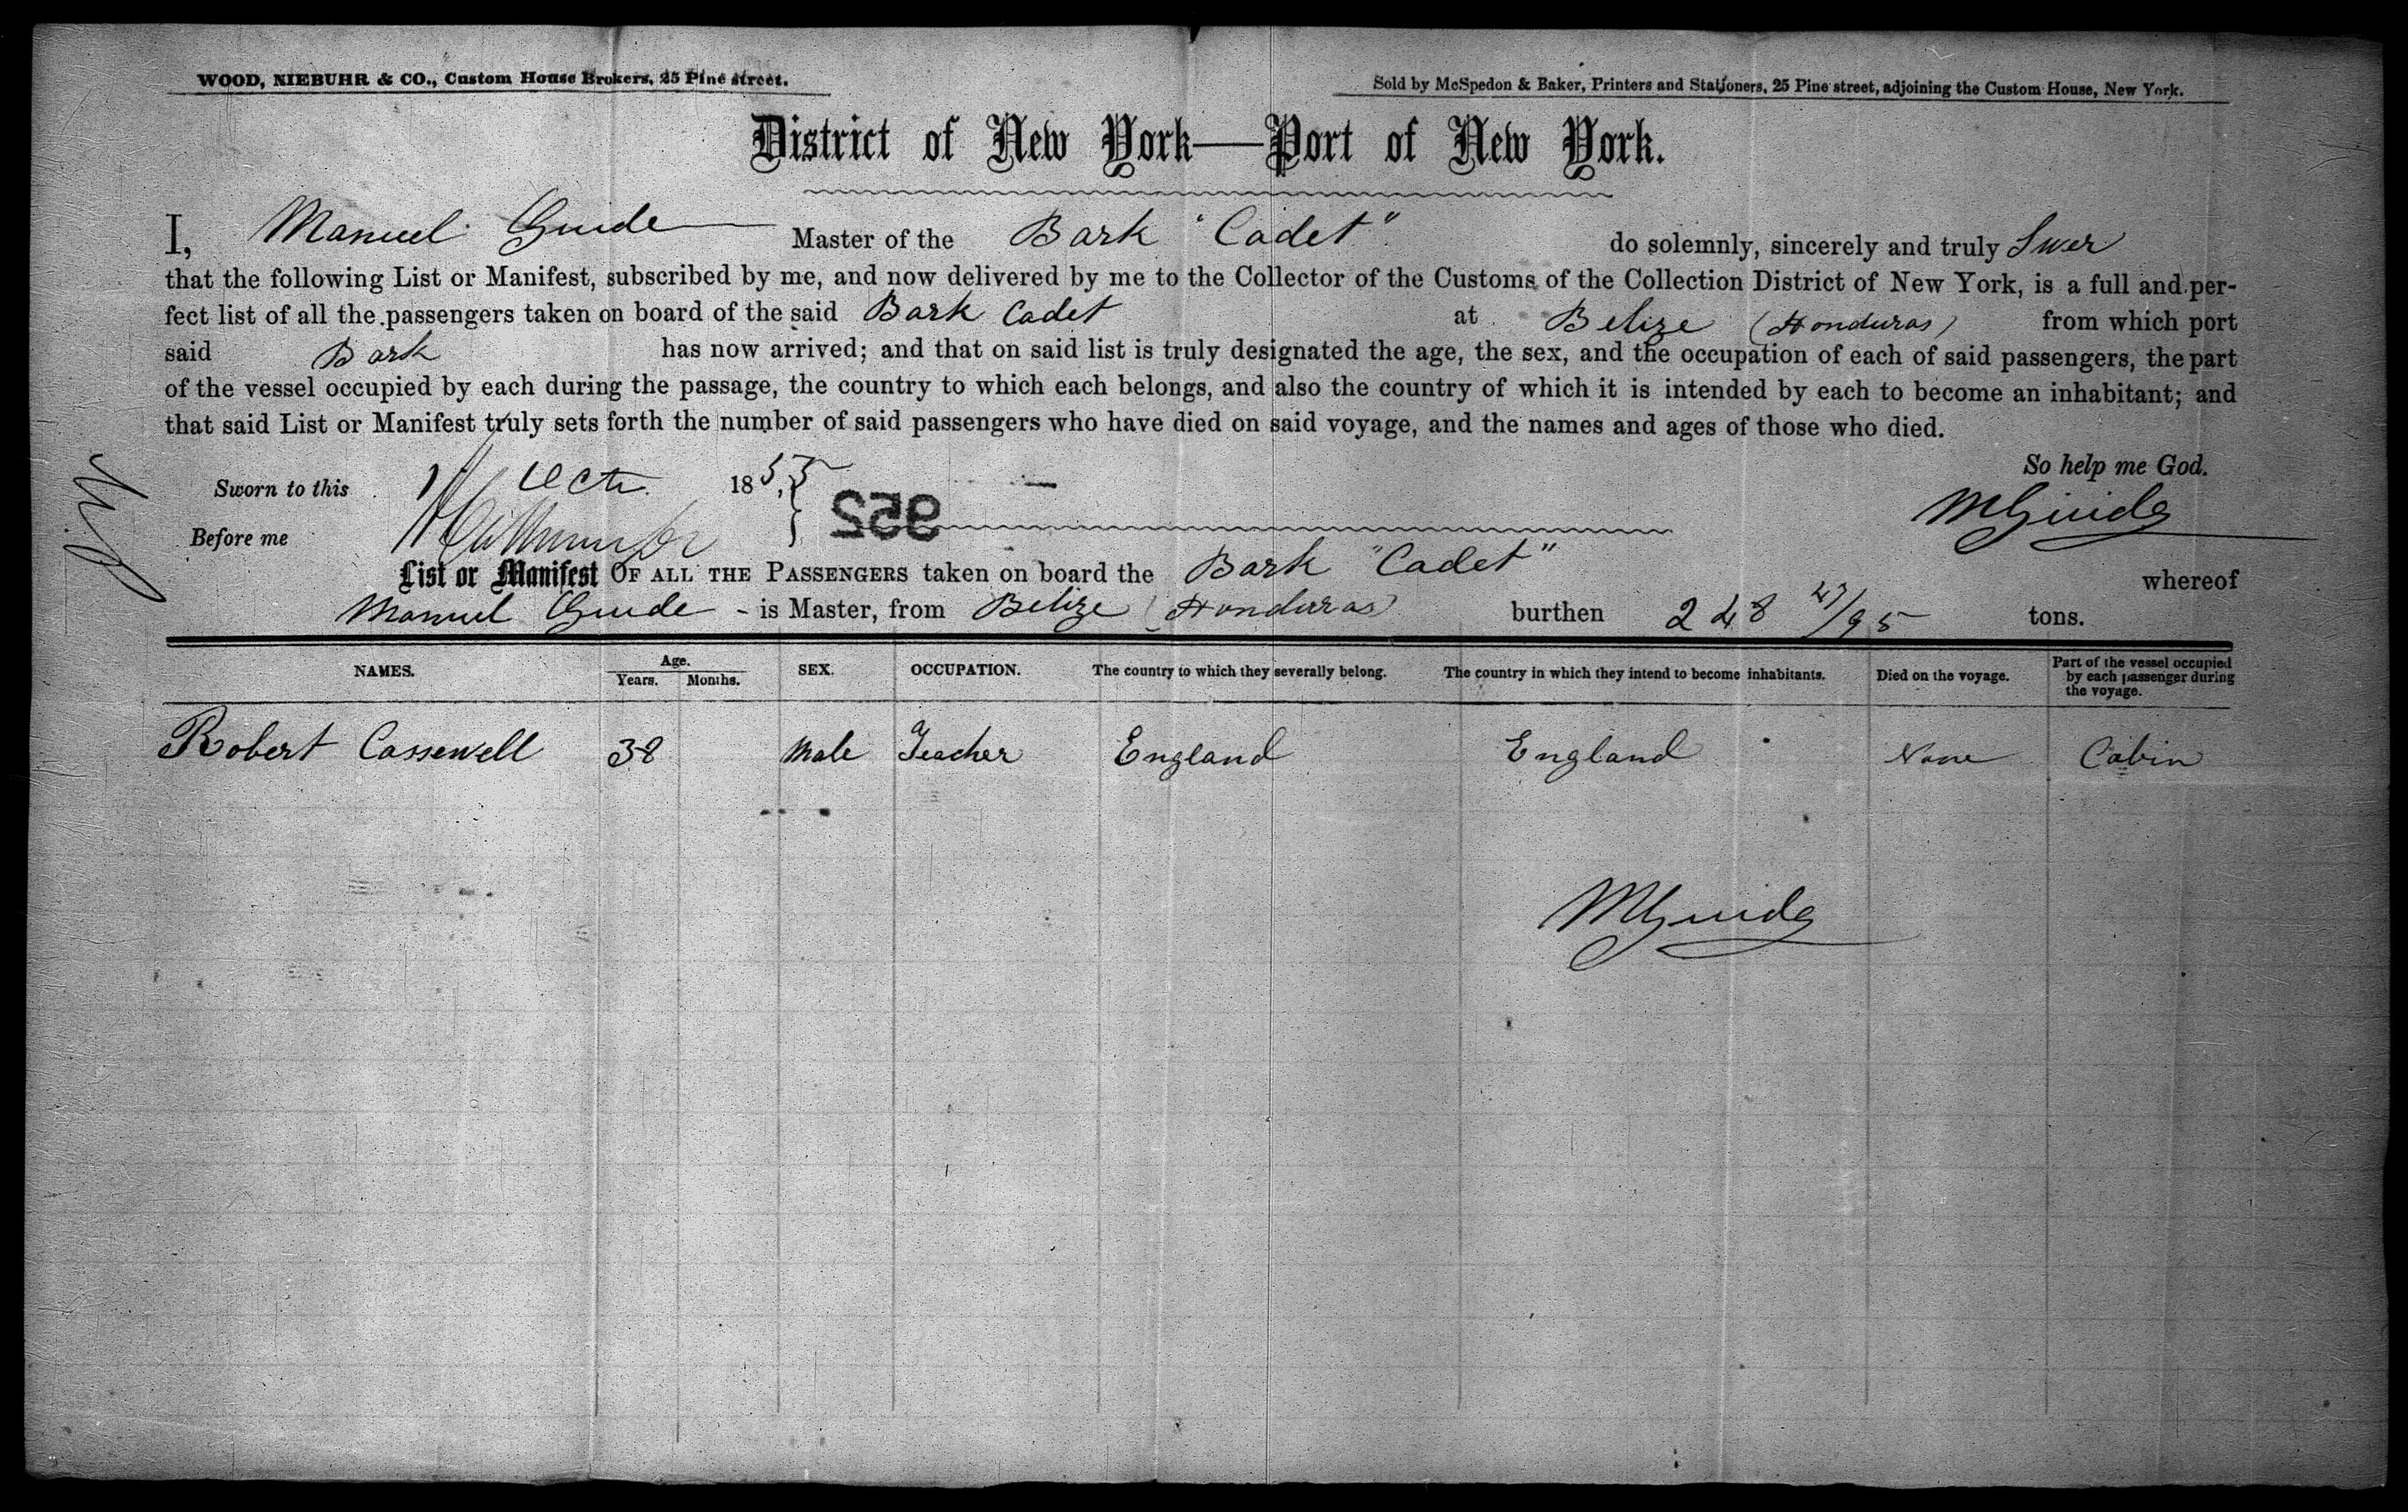 WOOD, NIEBUHR & CO., Custom House Brokers, 25 Pine street.
Sold by McSpedon & Baker, Printers and Stationers, 25 Pine street, adjoining the Custom House, New York.
District of New York—Port of New York.
I, Manuel Guide Master of the Bark "Cadet" do solemnly, sincerely and truly Swer
that the following List or Manifest, subscribed by me, and now delivered by me to the Collector of the Customs of the Collection District of New York, is a full and per-
fect list of all the passengers taken on board of the said Bark Cadet at Belize (Honduras) from which port
said Bark has now arrived; and that on said list is truly designated the age, the sex, and the occupation of each of said passengers, the part
of the vessel occupied by each during the passage, the country to which each belongs, and also the country of which it is intended by each to become an inhabitant; and
that said List or Manifest truly sets forth the number of said passengers who have died on said voyage, and the names and ages of those who died.
So help me God.
Sworn to this Octr. 1855
MGuide
Before me
952
List or Manifest OF ALL THE PASSENGERS taken on board the Bark "Cadet" whereof
Manuel Guide - is Master, from Belize (Honduras) burthen 248 47/95 tons.
NAMES. Age. Years. Months. SEX. OCCUPATION. The country to which they severally belong. The country in which they intend to become inhabitants. Died on the voyage. Part of the vessel occupied by each passenger during the voyage.
Robert Cassewell 38 Male Teacher England England None Cabin
MGuide